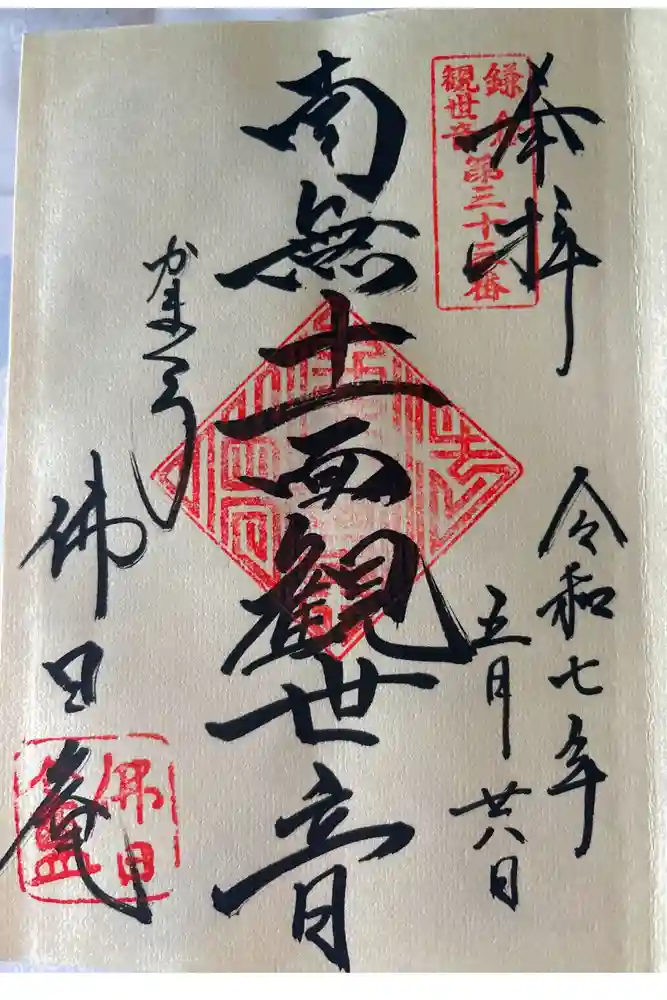 奉拝
鎌倉
観世音
第三十三番
令和七年
五月廿八日
南無十一面観世音
かまくら
佛日庵
佛日